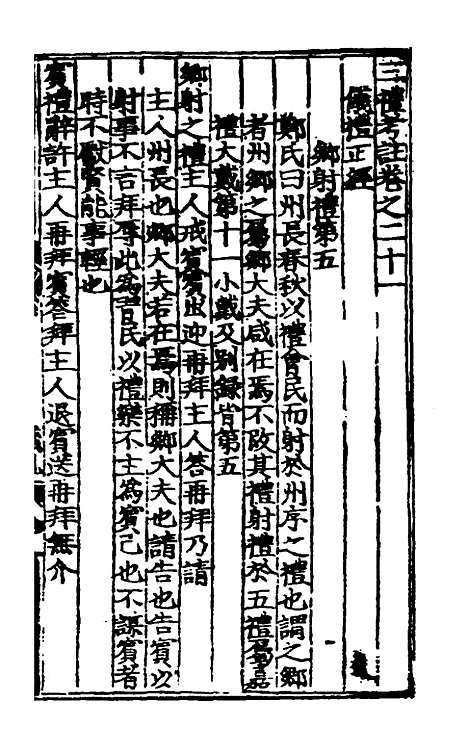 三禮考註卷之二十一
儀禮正經
鄉射禮第五
鄭氏曰州長春秋以禮會民而射於州序之禮也謂之鄉
者州鄉之屬鄉大夫或在焉不改其禮射禮於五禮屬嘉
禮大戴第十一小戴及別録皆第五
鄉射之禮主人戒賓賓出迎再拜主人答再拜乃請
主人州長也鄉大夫若在焉則稱鄉大夫也請告也告賓以
射事不言拜辱此為習民以禮樂不主為賓己也不謀賓者
時不獻賢能事輕也
賓禮辭許主人再拜賓答拜主人退賓送再拜無介